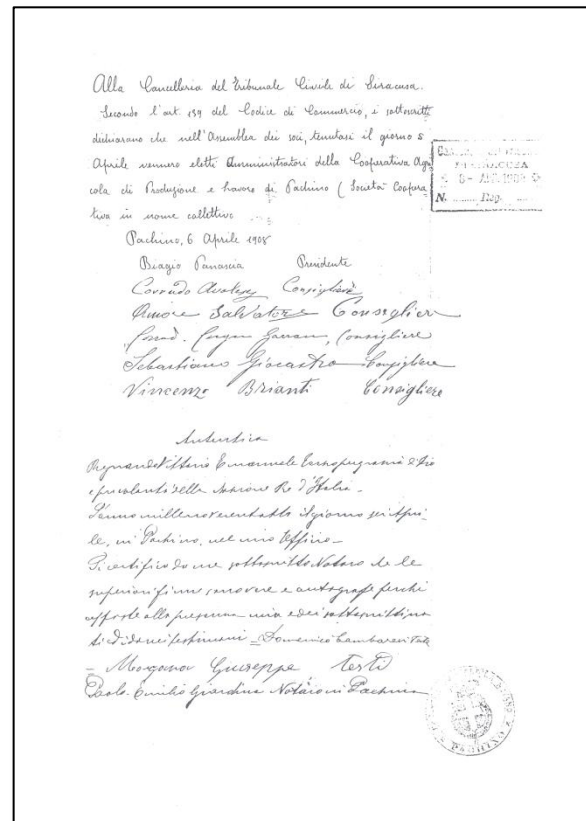 Alla Cancelleria del Tribunale Civile di Siracusa.
Secondo l'art. 139 del Codice di Commercio, i sottoscritti
dichiarano che nell'Assemblea dei soci, tenutasi il giorno 5
Aprile vennero eletti Amministratori della Cooperativa Agri
cola di Produzione e Lavoro di Pachino (Società Coopera
tiva in nome collettivo
Pachino, 6 Aprile 1908
Biagio Panascia Presidente
Corrado Consigliere
Amore Salvatore Consigliere
Corrad. Consigliere
Sebastiano Giocastro Consigliere
Vincenzo Brianti Consigliere
N. Reg.
Autentica
Regnando Vittorio Emanuele Terzo per grazia di Dio
e per volontà della Nazione Re d'Italia.
L'anno millenovecentotto il giorno sei Apri-
le, in Pachino, nel mio Ufficio.
Si certifica da me sottoscritto Notaro che le
superiori firme sono vere e autografe perchè
apposte alla presenza mia e dei sottoscritti no
ti ed idonei testimoni - Domenico teste
- Morgana Giuseppe testi
Paolo Emilio Giardina Notaio in Pachino
PACHINO